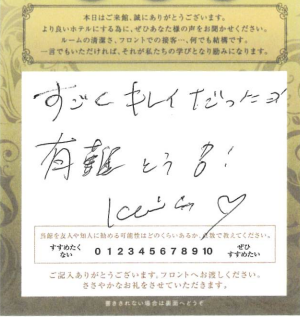 本日はご来館、誠にありがとうございます。
より良いホテルにする為に、ぜひあなた様の声をお聞かせください。
ルームの清潔さ、フロントでの接客…、何でも結構です。
一言でもいただければ、それが私たちの学びとなり励みになります。
すごくキレイだったヨ
有難とう!
当館を友人や知人に勧める可能性はどのくらいあるか、点数で教えてください。
すすめたくない 0 1 2 3 4 5 6 7 8 9 10 ぜひすすめたい
ご記入ありがとうございます。フロントへお渡しください。
ささやかなお礼をさせていただきます。
書ききれない場合は裏面へどうぞ